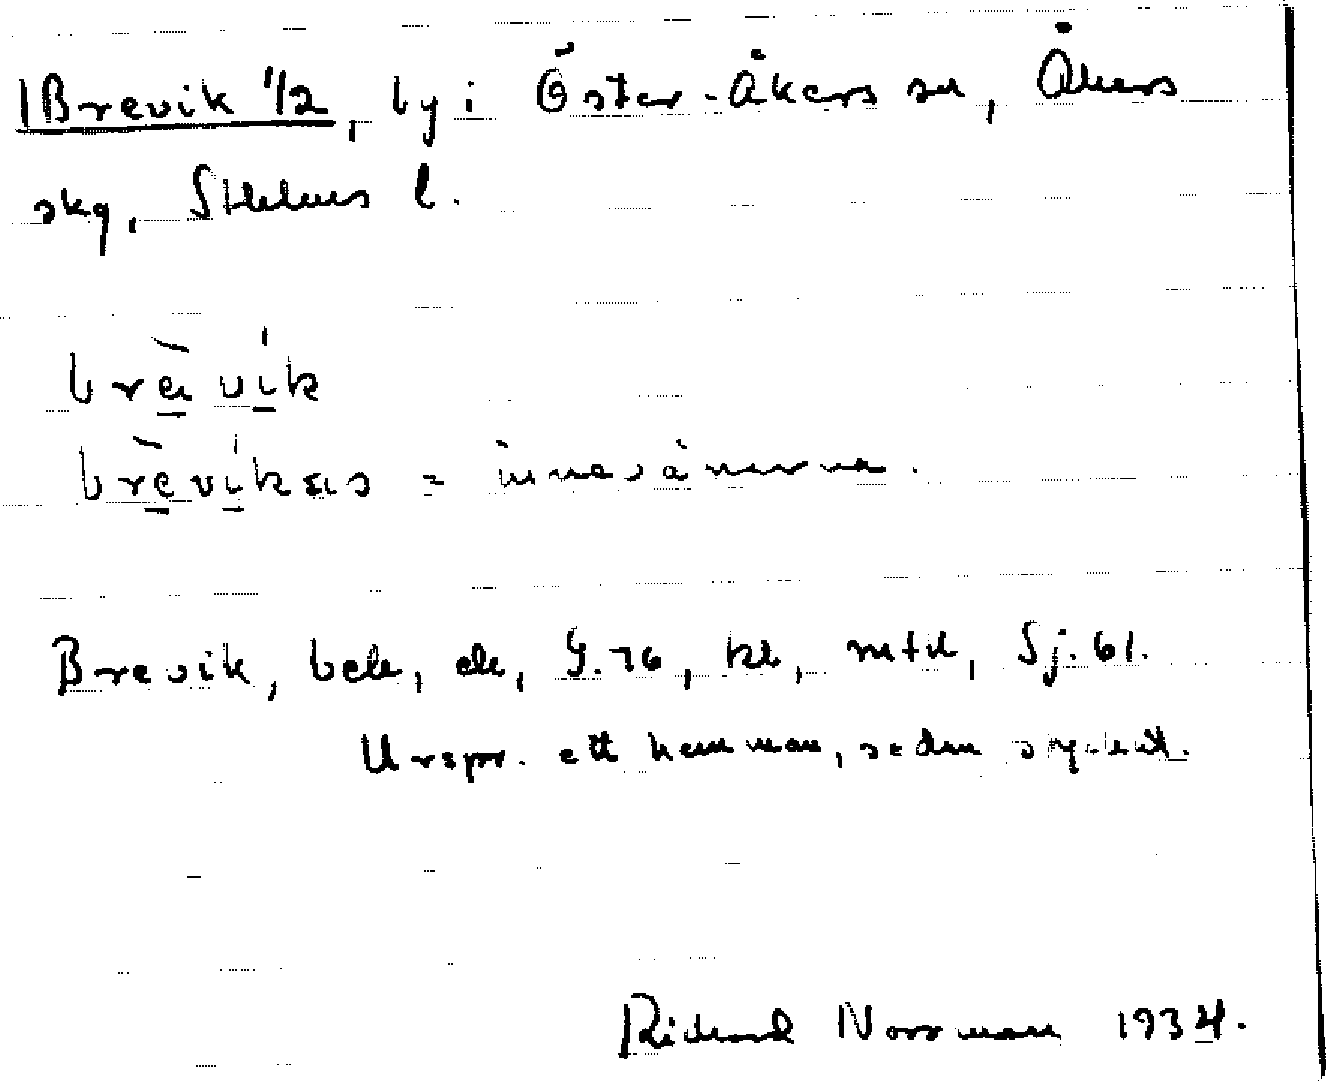 Brevik 1/2, by i Öster-Åkers sn, Åkers
skg, Sthlms l.
brèvík
brèvíkas = innevånarna.
Brevik, beb, ek, G.76, kb, mtl, Sj. 61.
Urspr. ett hemman, sedan
Richard Norrman 1934.